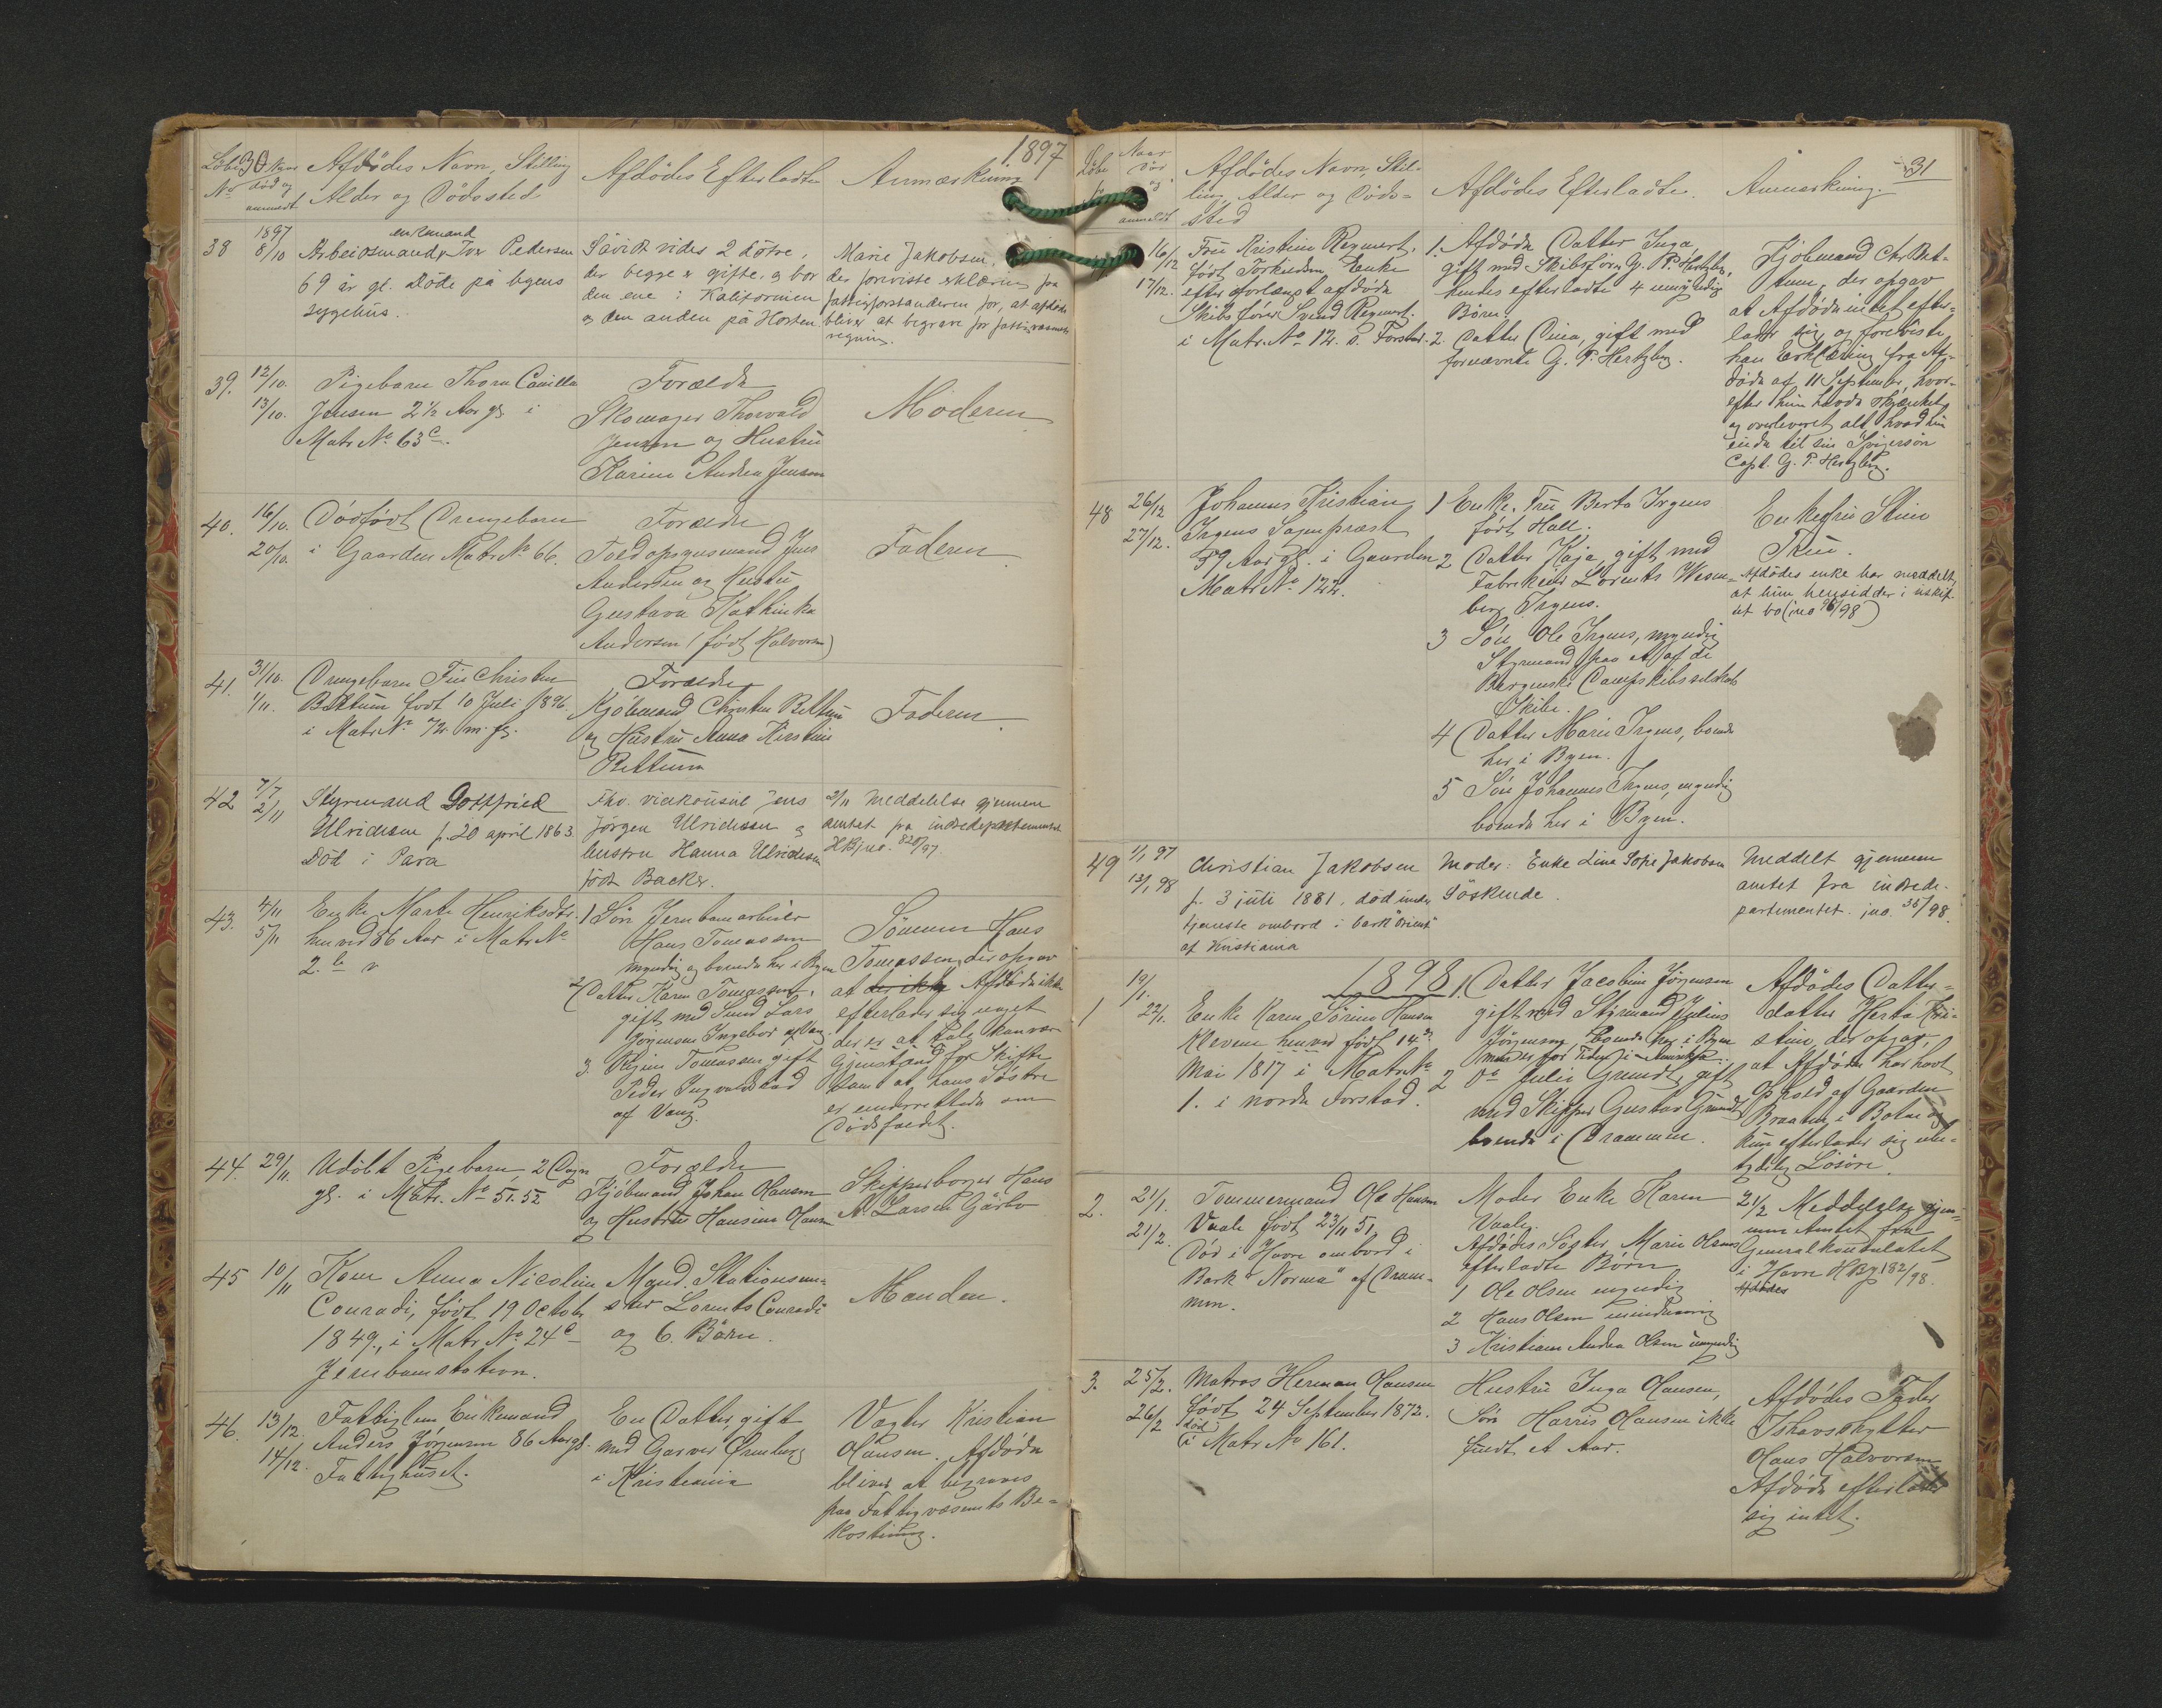 30
Løbe No
Naar død og anmeldt
Afdødes Navn, Stilling
Alder og Dødssted
Afdødes Efterladte
Anmærkning
1897
38
1897
8/10
enkemand
Arbeidsmand Iver Pedersen
69 år gl. Døde på byens
sygehus.
Såvidt vides 2 døtre,
der begge er gifte, og bor
den ene i Kalifornien
og den anden på Horten
Marie Jakobsen,
der foreviste erklæring fra
fattigforstanderen for, at afdøde
bliver at begrave for fattigvæsenets
regning.
39.
12/10.
13/10.
Pigebarn Thora Camilla
Jensen 2 1/2 Aar gl. i
Matr. No 63c.
Forældre
Skomager Thorvald
Jensen og Hustru
Karine Andrea Jensen
Moderen
40.
16/10.
20/10.
Dødfødt Drengebarn
i Gaarden Matr. No 66.
Forældre
Toldopsynsmand Jens
Andersen og Hustru
Gustava Kathinka
Andersen (født Halvorsen)
Faderen
41.
31/10.
1/11.
Drengebarn Finn Christen
Bettum født 10 Juli 1896.
i Matr. No 72.
Forældre
Kjøbmand Christen Bettum
og Hustru Anna Kirstine
Bettum
Faderen
42
7/7
2/11
Styrmand Gottfried
Ulrichsen f. 20 april 1863.
Død i Para
Fhv. vicekonsul Jens
Jørgen Ulrichsen og
hustru Hanna Ulrichsen
født Backer.
2/11 Meddelelse gjennem
amtet fra indredepartementet
HBjno. 820/97.
43.
4/11
5/11
Enke Marte Henriksdtr.
henved 86 Aar i Matr. No
2.b
1 Søn Jernbanearbeider
Hans Tomassen
myndig og boende her i Byen
2 Datter Karen Tomassen,
gift med Svend Lars
Jørgensen
3. Regine Tomassen gift
Peder Ingvaldstad
af Vang.
Sønnen Hans
Tomassen, der opgav
at der ikke Afdøde ikke
efterlader sig noget
der er at tale kan være
Gjenstand for Skifte
samt at hans Søstre
er underrettede om
Dødsfaldet.
44.
29/11.
Udøbt Pigebarn 2 Dage
gl. i Matr. No 51.52
Forældre
Kjøbmand Johan Hansen
og Hustru Hansine Hansen
Skipperborger Hans
A. Larsen Gårbo
45
10/11
Kone Anna Nicoline
Conradi, født 19 October
1849, i Matr. No 24c
Jernbanestation.
Mand. Stationsme-
ster Lorents Conradi
og 6. Børn.
Manden.
46.
13/12.
14/12.
Fattiglem Enkemand
Anders Jørgensen 86 Aar gl.
Fattighuset.
En Datter, gift
med Garver Ørenberg
i Kristiania
Vægter Kristian
Hansen. Afdøde
bliver at begraves
paa Fattigvæsenets Be-
kostning.
31
Løbe
Naar død og anmeldt
Afdødes Navn, Stil-
ling, Alder og Døds-
sted
Afdødes Efterladte.
Anmærkning.
16/12
17/12.
Fru Kristine Regnert,
født Torkildsen Enke
efter forlængst afdøde
Skibsfører Svend Regnert.
i Matr. No 12. s. Forstad.
1. Afdøde Datter Inga,
gift med Skibsfører G. P. Hertzberg,
hendes efterladte 4 umyndige
Børn
2. Datter Dina, gift med
fornævnte G. P. Hertzberg.
Kjøbmand Chr. Bet-
tum, der opgav
at Afdøde intet efter-
lader sig og foreviste
han Erklæring fra Af-
døde af 11 September, hvor-
efter hun havde skjænket
og overleveret alt hvad hun
eiede til sin Svigersøn
Capt. G. P. Hertzberg.
48
26/12
27/12.
Johannes Kristian
Irgens Sogneprest
59 Aar gl. i Gaarden
Matr. No 122.
1 Enke, Fru Berta Irgens
født Hall.
2 Datter Kaja, gift med
Fabrikeier Lorents Wesen-
berg Irgens.
3 Søn Ole Irgens, myndig
Styrmand paa et af de
Bergenske Dampskibsselskabs
Skibe.
4 Datter Marie Irgens, boende
her i Byen.
5 Søn Johannes Irgens, myndig
boende her i Byen.
Enkefru Stine
Thue.
Afdødes enke har meddelt,
at hun hensidder i uskif-
tet bo (jno 96/98)
49
1/1 97
13/1 98
Christian Jakobsen
f. 3 juli 1881, død under
tjeneste ombord i bark "Orient"
af Kristiania
Moder: Enke Lina Sofie Jakobsen
Søskende.
Meddelt gjennem
amtet fra indrede-
partementet. jno. 35/98.
1898
1
19/1.
22/1.
Enke Karen Sørine Hansen
Klevene henved født 14de
Mai 1817 i Matr. No
1. i nordre Forstad.
1. Datter Jacobine Jørgensen
gift med Styrmand Julius
Jørgensen, boende her i Byen
men er for Tiden i Amerika.
2 do Julie Grundt gift
med Skipper Gustav Grundt
boende i Drammen.
Afdødes Datter-
datter Herta Kri-
stine, der opgav,
at Afdøde har havt
Ophold af Gaarden
Braaten i Botne og
kun efterlader sig ube-
tydelig Løsøre.
2.
21/1.
21/2.
Tømmermand Ole Hansen
Vaale født 23/11 51,
Død i Havre ombord i
Bark "Norma" af Dram-
men.
Moder Enke Karen
Vaale.
Afdødes Søster Marie Olsens
efterladte Børn
1 Ole Olsen myndig
2 Hans Olsen mindreaarig
3 Kristiane Andrea Olsen umyndig
21/2 Meddelelse gjen-
nem Amtet fra
Generalkonsulatet
i Havre HBj 182/98.
3.
25/2.
26/2
Matros Herman Hansen
født 24 September 1872.
død
i Matr. No 161.
Hustru Inga Hansen,
Søn Harris Hansen ikke
fuldt et Aar.
Afdødes Fader
Ishavsskytter
Hans Halvorsen
Afdøde efterlader
sig intet.